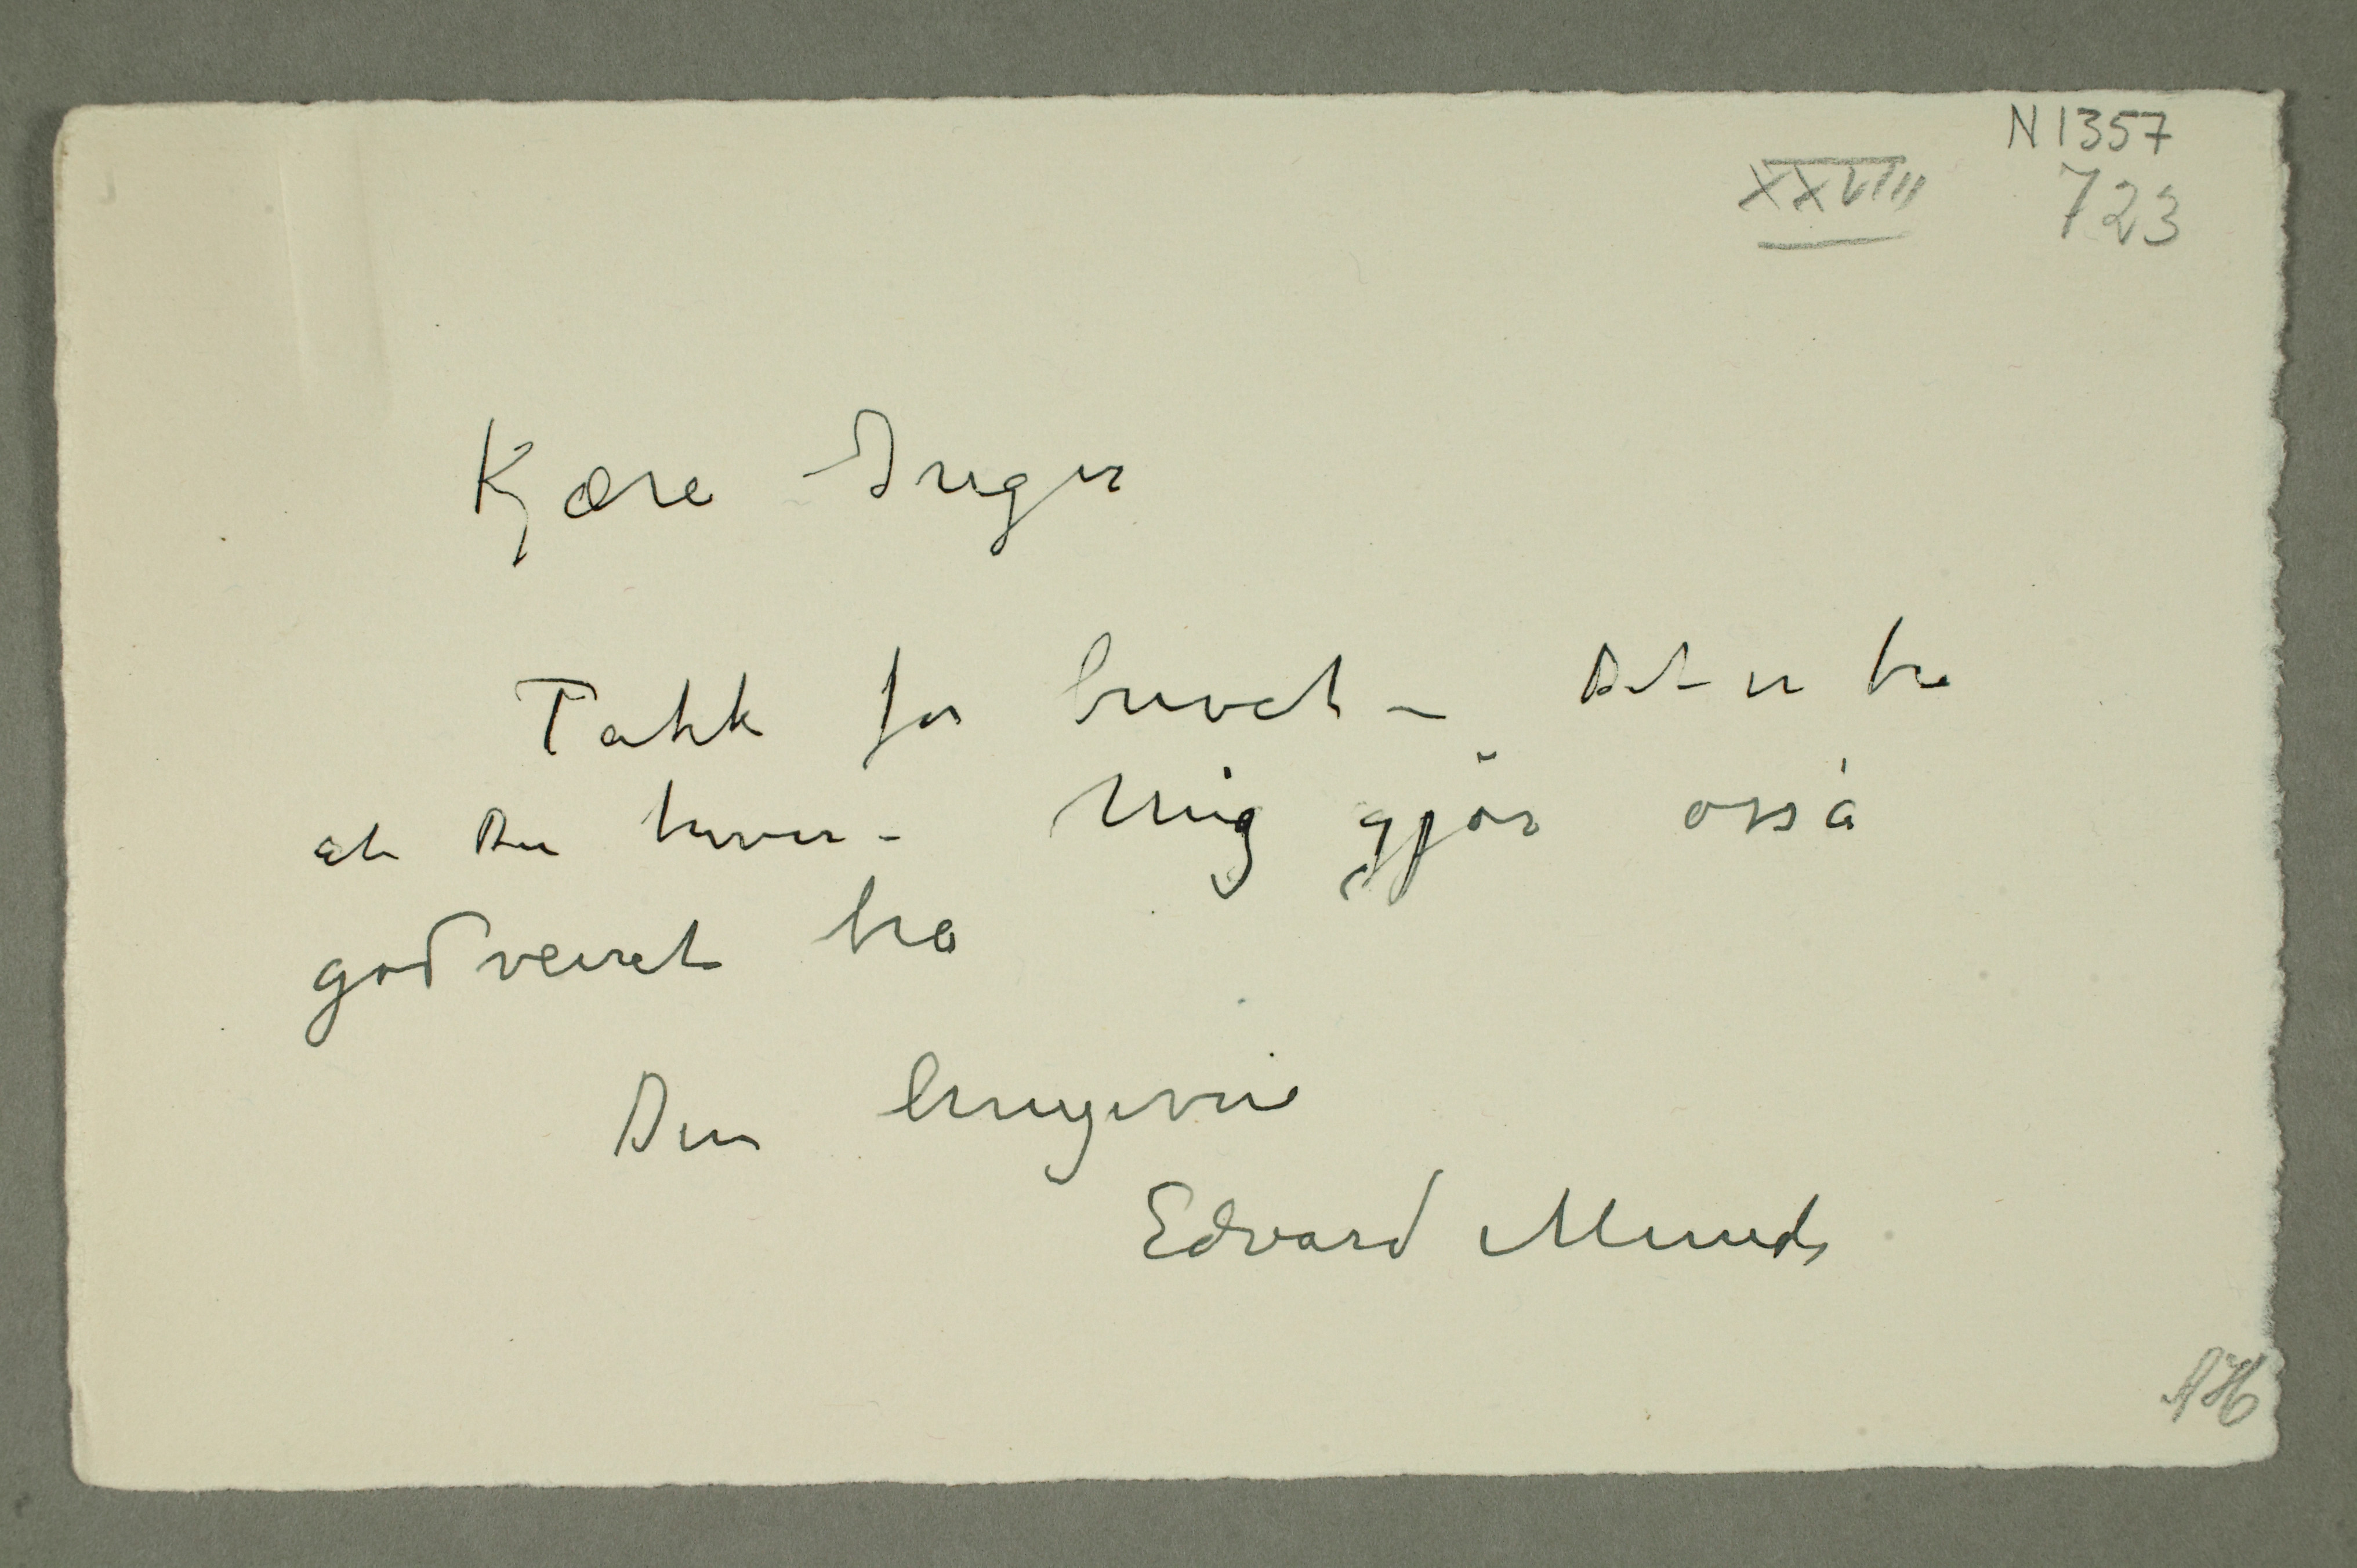 N 1357
XXVIII
723
Kjære Inger
Takk for brevet – Det er bra
at Du trives – Mig gjör osså
godveiret bra
Din hengivne
Edvard Munch